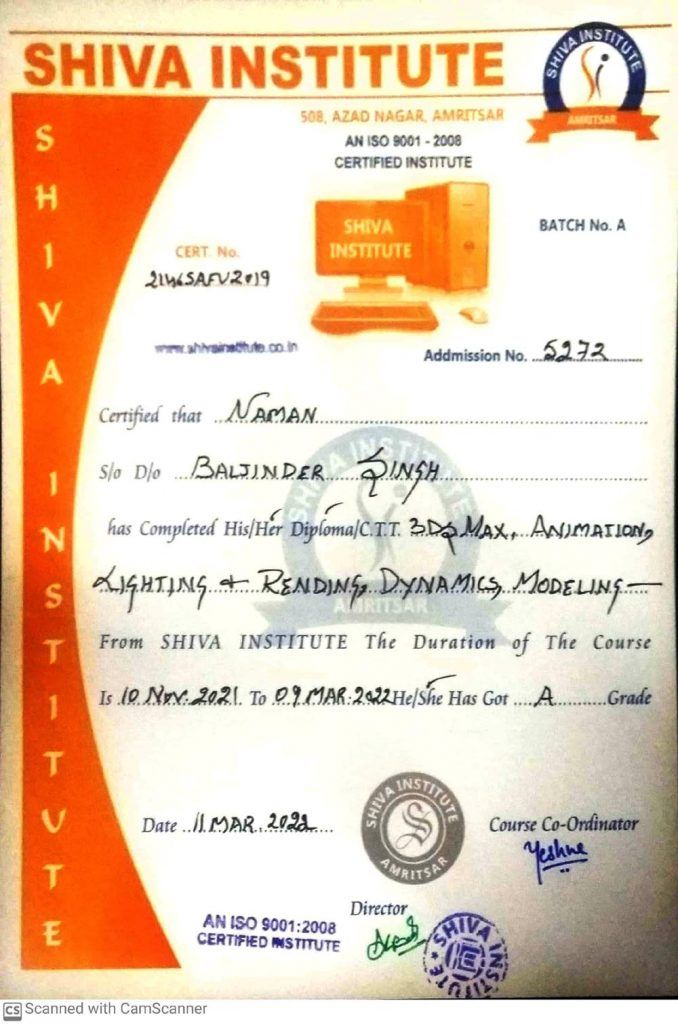 SHIVA INSTITUTE
SHIVA INSTITUTE
AMRITSAR
SHIVA INSTITUTE
508, AZAD NAGAR, AMRITSAR
AN ISO 9001 - 2008
CERTIFIED INSTITUTE
SHIVA
INSTITUTE
BATCH No. A
CERT. No.
2146SAFU2019
www.shivainstitute.co.in
Addmission No. 5272
Certified that NAMAN
S/o D/o BALJINDER SINGH
has Completed His/Her Diploma/C.T.T. 3Ds MAX, ANIMATION,
LIGHTING & RENDING, DYNAMICS, MODELING
SHIVA INSTITUTE
AMRITSAR
From SHIVA INSTITUTE The Duration of The Course
Is 10 NOV. 2021 To 09 MAR. 2022 He/She Has Got A Grade
Date 11 MAR. 2022
SHIVA INSTITUTE
AMRITSAR
Course Co-Ordinator
Yeshna
Director
AN ISO 9001:2008
CERTIFIED INSTITUTE
SHIVA INSTITUTE
CS Scanned with CamScanner